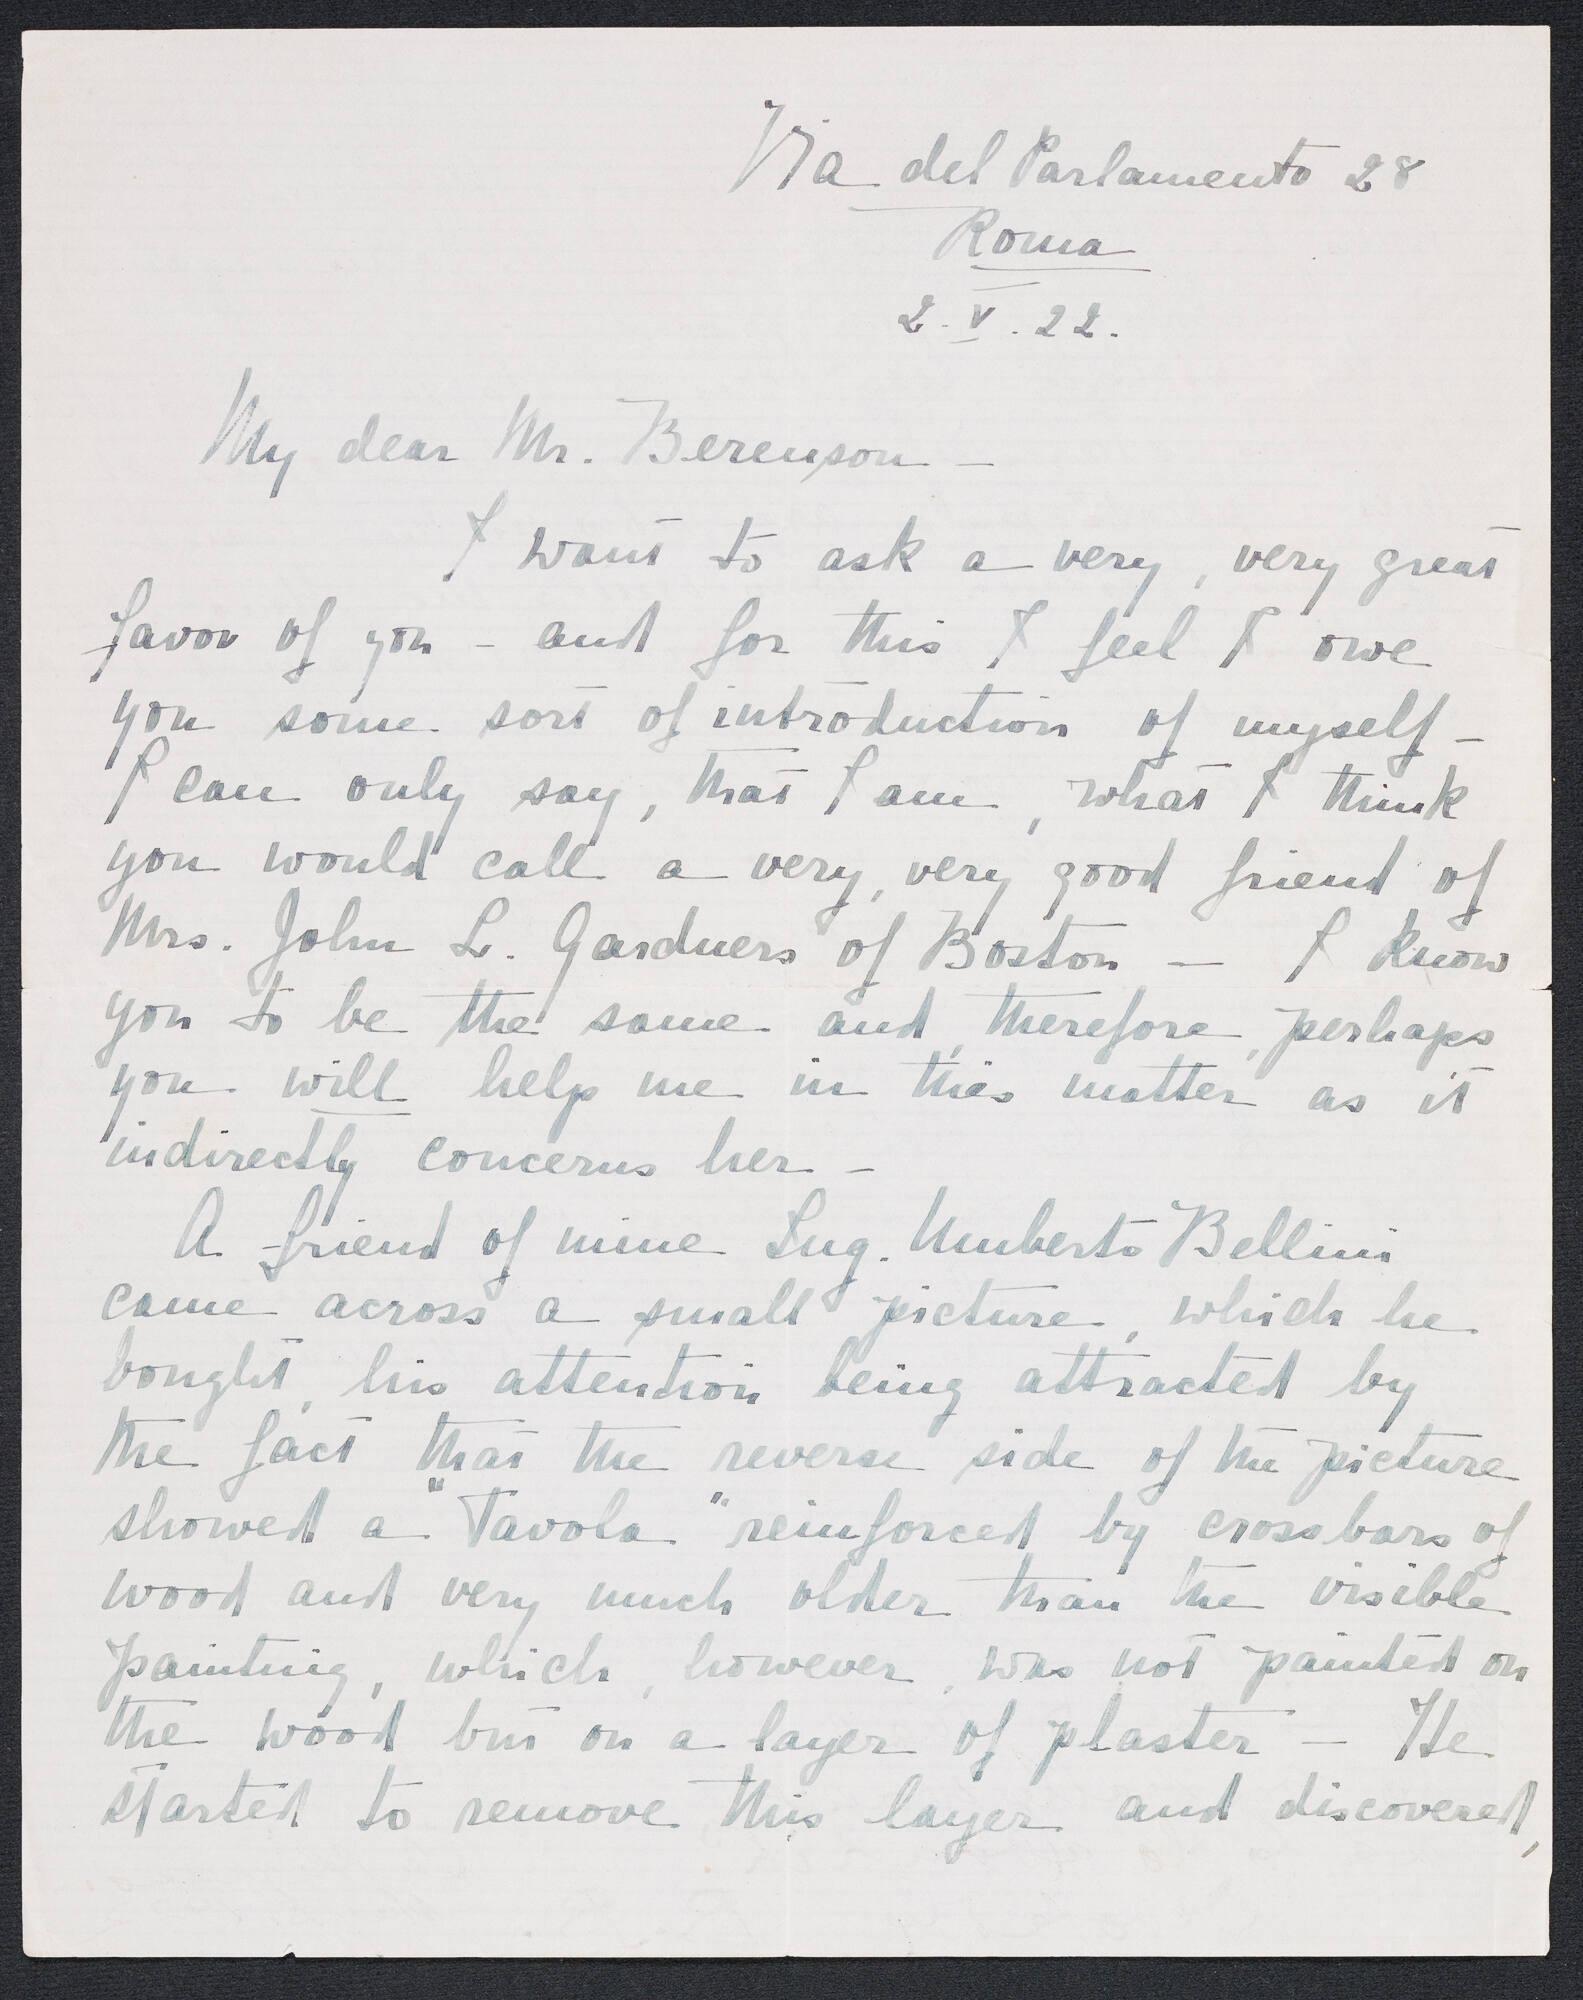 Via del Parlamento 28
Roma
2. V. 22.
My dear Mr. Berenson –
I want to ask a very, very great
favor of you – and for this I feel I owe
you some sort of introduction of myself –
I can only say, that I am, what I think
you would call a very, very good friend of
Mrs. John L. Gardners of Boston – I know
you to be the same and, therefore, perhaps
you will help me in this matter as it
indirectly concerns her –
A friend of mine Ing. Umberto Bellini
came across a small picture, which he
bought, his attention being attracted by
the fact that the reverse side of the picture
showed a "Tavola" reinforced by crossbars of
wood and very much older than the visible
painting, which, however, was not painted on
the wood but on a layer of plaster – He
started to remove this layer and discovered,